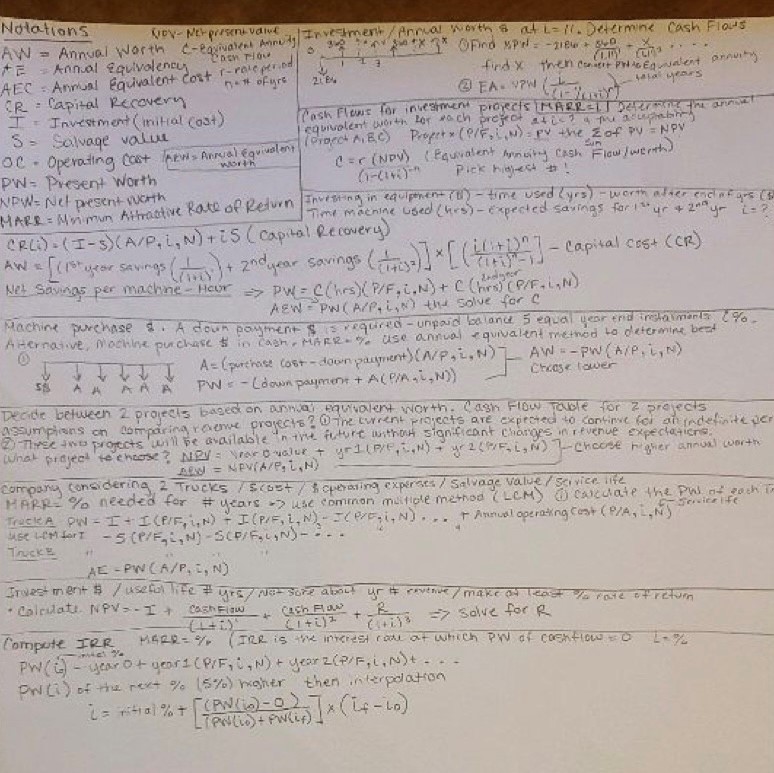 Notations NPV - Net present value
AW = Annual Worth C - equivalent Annuity Cash Flow
AE = Annual Equivalency r - rate period
AEC = Annual Equivalent Cost n = # of yrs
CR = Capital Recovery
I = Investment (initial cost)
S = Salvage value
OC = Operating Cost AEW = Annual Equivalent Worth
PW = Present Worth
NPW = Net present worth
MARR = Minimun Attractive Rate of Return
Investment / Annual Worth $ at i = 11. Determine Cash Flows
① Find NPW = -2186 +
find X then convert PW to Equivalent annuity
② EA = NPW total years
Cash Flows for investment projects MARR = Determine the annual
equivalent worth for each project at i = ? & the acceptability
(Project A, B, C) Project x (P/F, i, N) = PV the Σ of PV = NPV
Sum
C = r (NPV) / (1-(1+r)^-n (Equivalent Annuity Cash Flow/worth)
Pick highest # !
Investing in equipment ($) - time used (yrs) - worth after end of yrs ($
Time machine used (hrs) - expected savings for 1st yr + 2nd yr i = ?
CR(i) = (I - S)(A/P, i, N) + iS (Capital Recovery)
AW = [(1st year savings (1/(1+i)) + 2nd year savings (1/(1+i)²)] × [(i(1+i)^n/(1+i)^n-1)] - Capital Cost (CR)
Net Savings per machine - Hour => PW = C(hrs)(P/F, i, N) + C(hrs)(P/F, i, N)
2nd year
AEW = PW(A/P, i, N) the solve for C
Machine purchase $. A down payment $ is required - unpaid balance 5 equal year end instalments i%.
Alternative, machine purchase $ in cash, MARR = % use annual equivalent method to determine best
① A = (purchase cost - down payment)(A/P, i, N) AW = -PW(A/P, i, N)
$$ A A A A A PW = -(down payment + A(P/A, i, N)) Choose lower
Decide between 2 projects based on annual equivalent worth. Cash Flow Table for 2 projects
assumptions on comparing revenue projects? ① The current projects are expected to continue for an indefinite per
② These two projects will be available in the future without significant changes in revenue expectations.
What project to choose? NPV = Year 0 value + yr 1 (P/F, i, N) + yr 2 (P/F, i, N) - Choose higher annual worth
AEW = NPV(A/P, i, N)
Company considering 2 Trucks / $ cost / $ operating expenses / Salvage value / Service life
MARR = % needed for # years => use common multiple method (LCM) ① Calculate the PW of each
Truck A PW = I + I(P/F, i, N) + I(P/F, i, N) - I(P/F, i, N) ... + Annual operating cost (P/A, i, N)
Service life
use LCM for I - S(P/F, i, N) - S(P/F, i, N) - ...
Truck B " " "
AE = PW(A/P, i, N)
Investment $ / useful life # yrs / Not sure about yr # revenue / make at least % rate of return
• Calculate NPV = -I + Cash Flow/(1+i)¹ + Cash Flow/(1+i)² + R/(1+i)³ => Solve for R
Compute IRR MARR = % (IRR is the interest rate at which PW of cashflow = 0 i = %
initial %
PW(i) - year 0 + year 1 (P/F, i, N) + year 2 (P/F, i, N) + . . .
PW(i) of the next % (5%) higher then interpolation
i = initial % + [(PW(i₀) - 0)/(PW(i₀) + PW(if)] × (if - i₀)